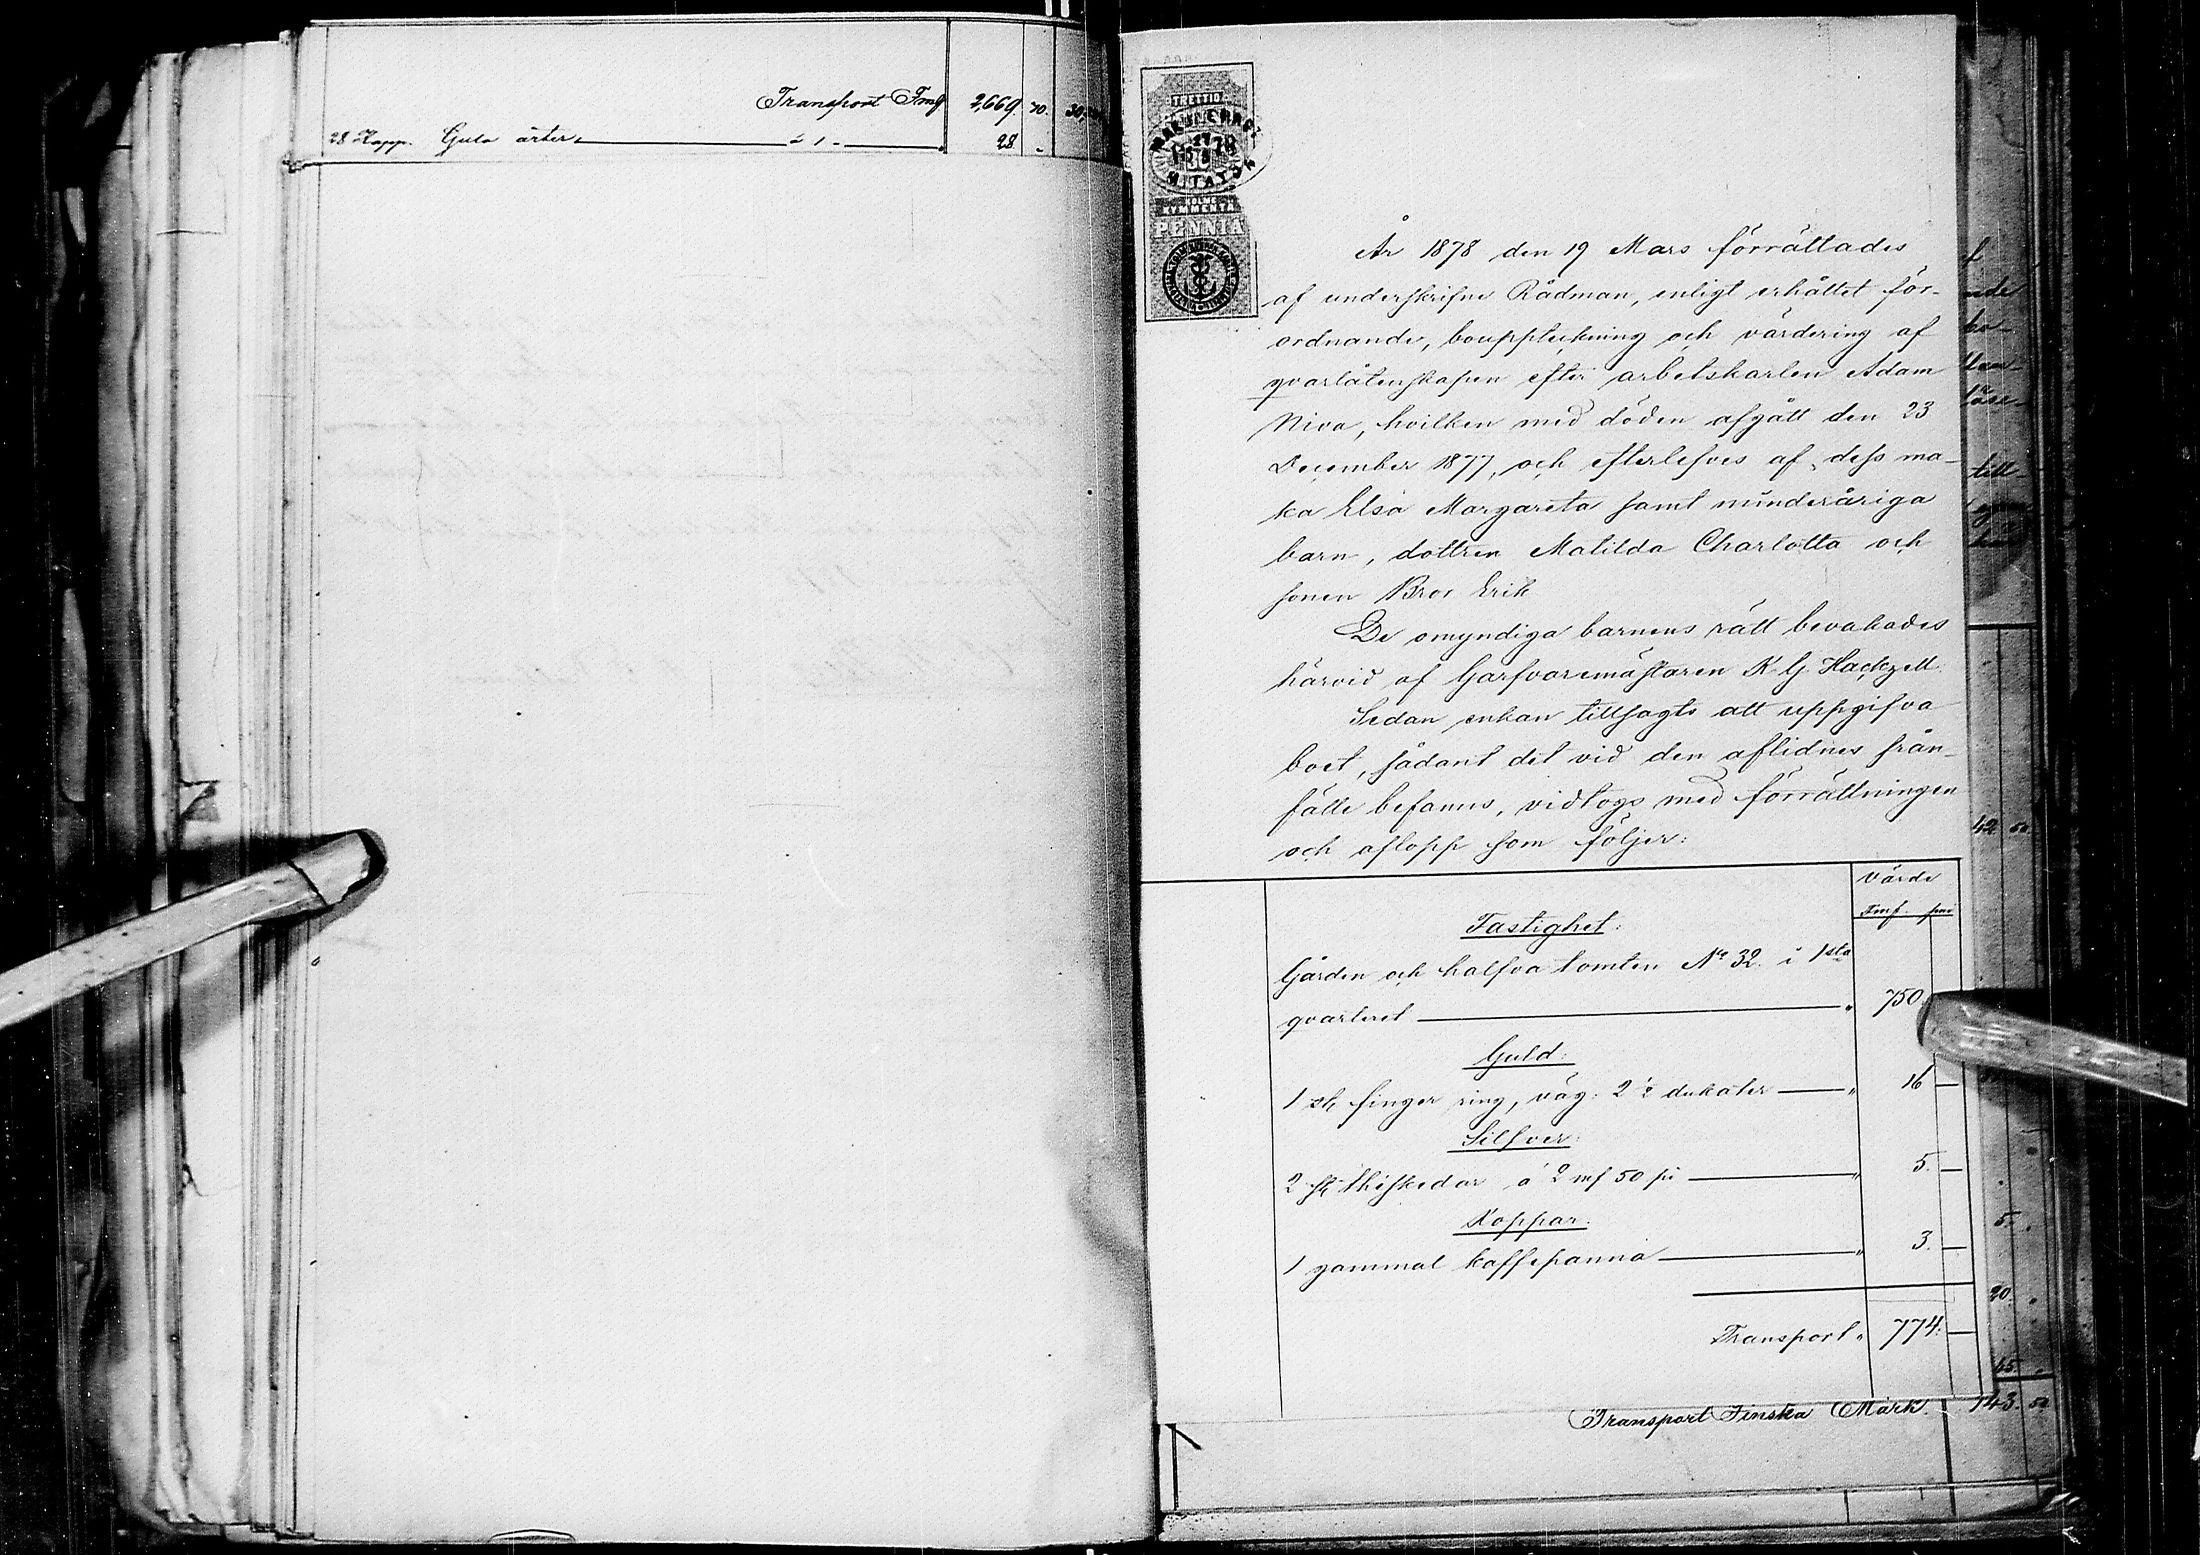 Transport Fmg 2,669. 70.
28 Kapp. Gula ärter à 1 - " 28 -
TRETTIO
KOLME
KYMMENTÄ
PENNIÄ
År 1878 den 19 Mars förrättades
af underskrifne Rådman, enligt erhållet för-
ordnande, bouppteckning och värdering af
qvarlåtenskapen efter arbetskarlen Adam
Niva, hvilken med döden afgått den 23
December 1877, och efterlefves af dess ma-
ka Elsa Margareta samt minderåriga
barn, dottren Matilda Charlotta och
sonen Bror Erik
De omyndiga barnens rätt bevakades
härvid af Garfvaremästaren K. G. Hackzell.
Sedan enkan tillsagts att uppgifva
boet, sådant det vid den aflidnes från-
fälle befanns, vidtogs med förrättningen
och aflopp som följer:
Värde
Fmf. pni
Fastighet:
Gården och halfva tomten No 32. i 1sta
qvarteret " 750.
Guld:
1 st. finger ring, väg. 2 1/2 dukater " 16 —
Silfver:
2 st. theskedar à 2 mf 50 pi " 5. —
Koppar:
1 gammal kaffepanna " 3. —
Transport " 774: —
Transport Finska Mark. 743. 50